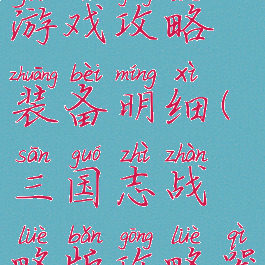 游戏攻略
zhuāng bèi míng xì
装备明细(
sān guó zhì zhàn
三国志战
lüè bǎn gōng lüè qì
略版攻略器